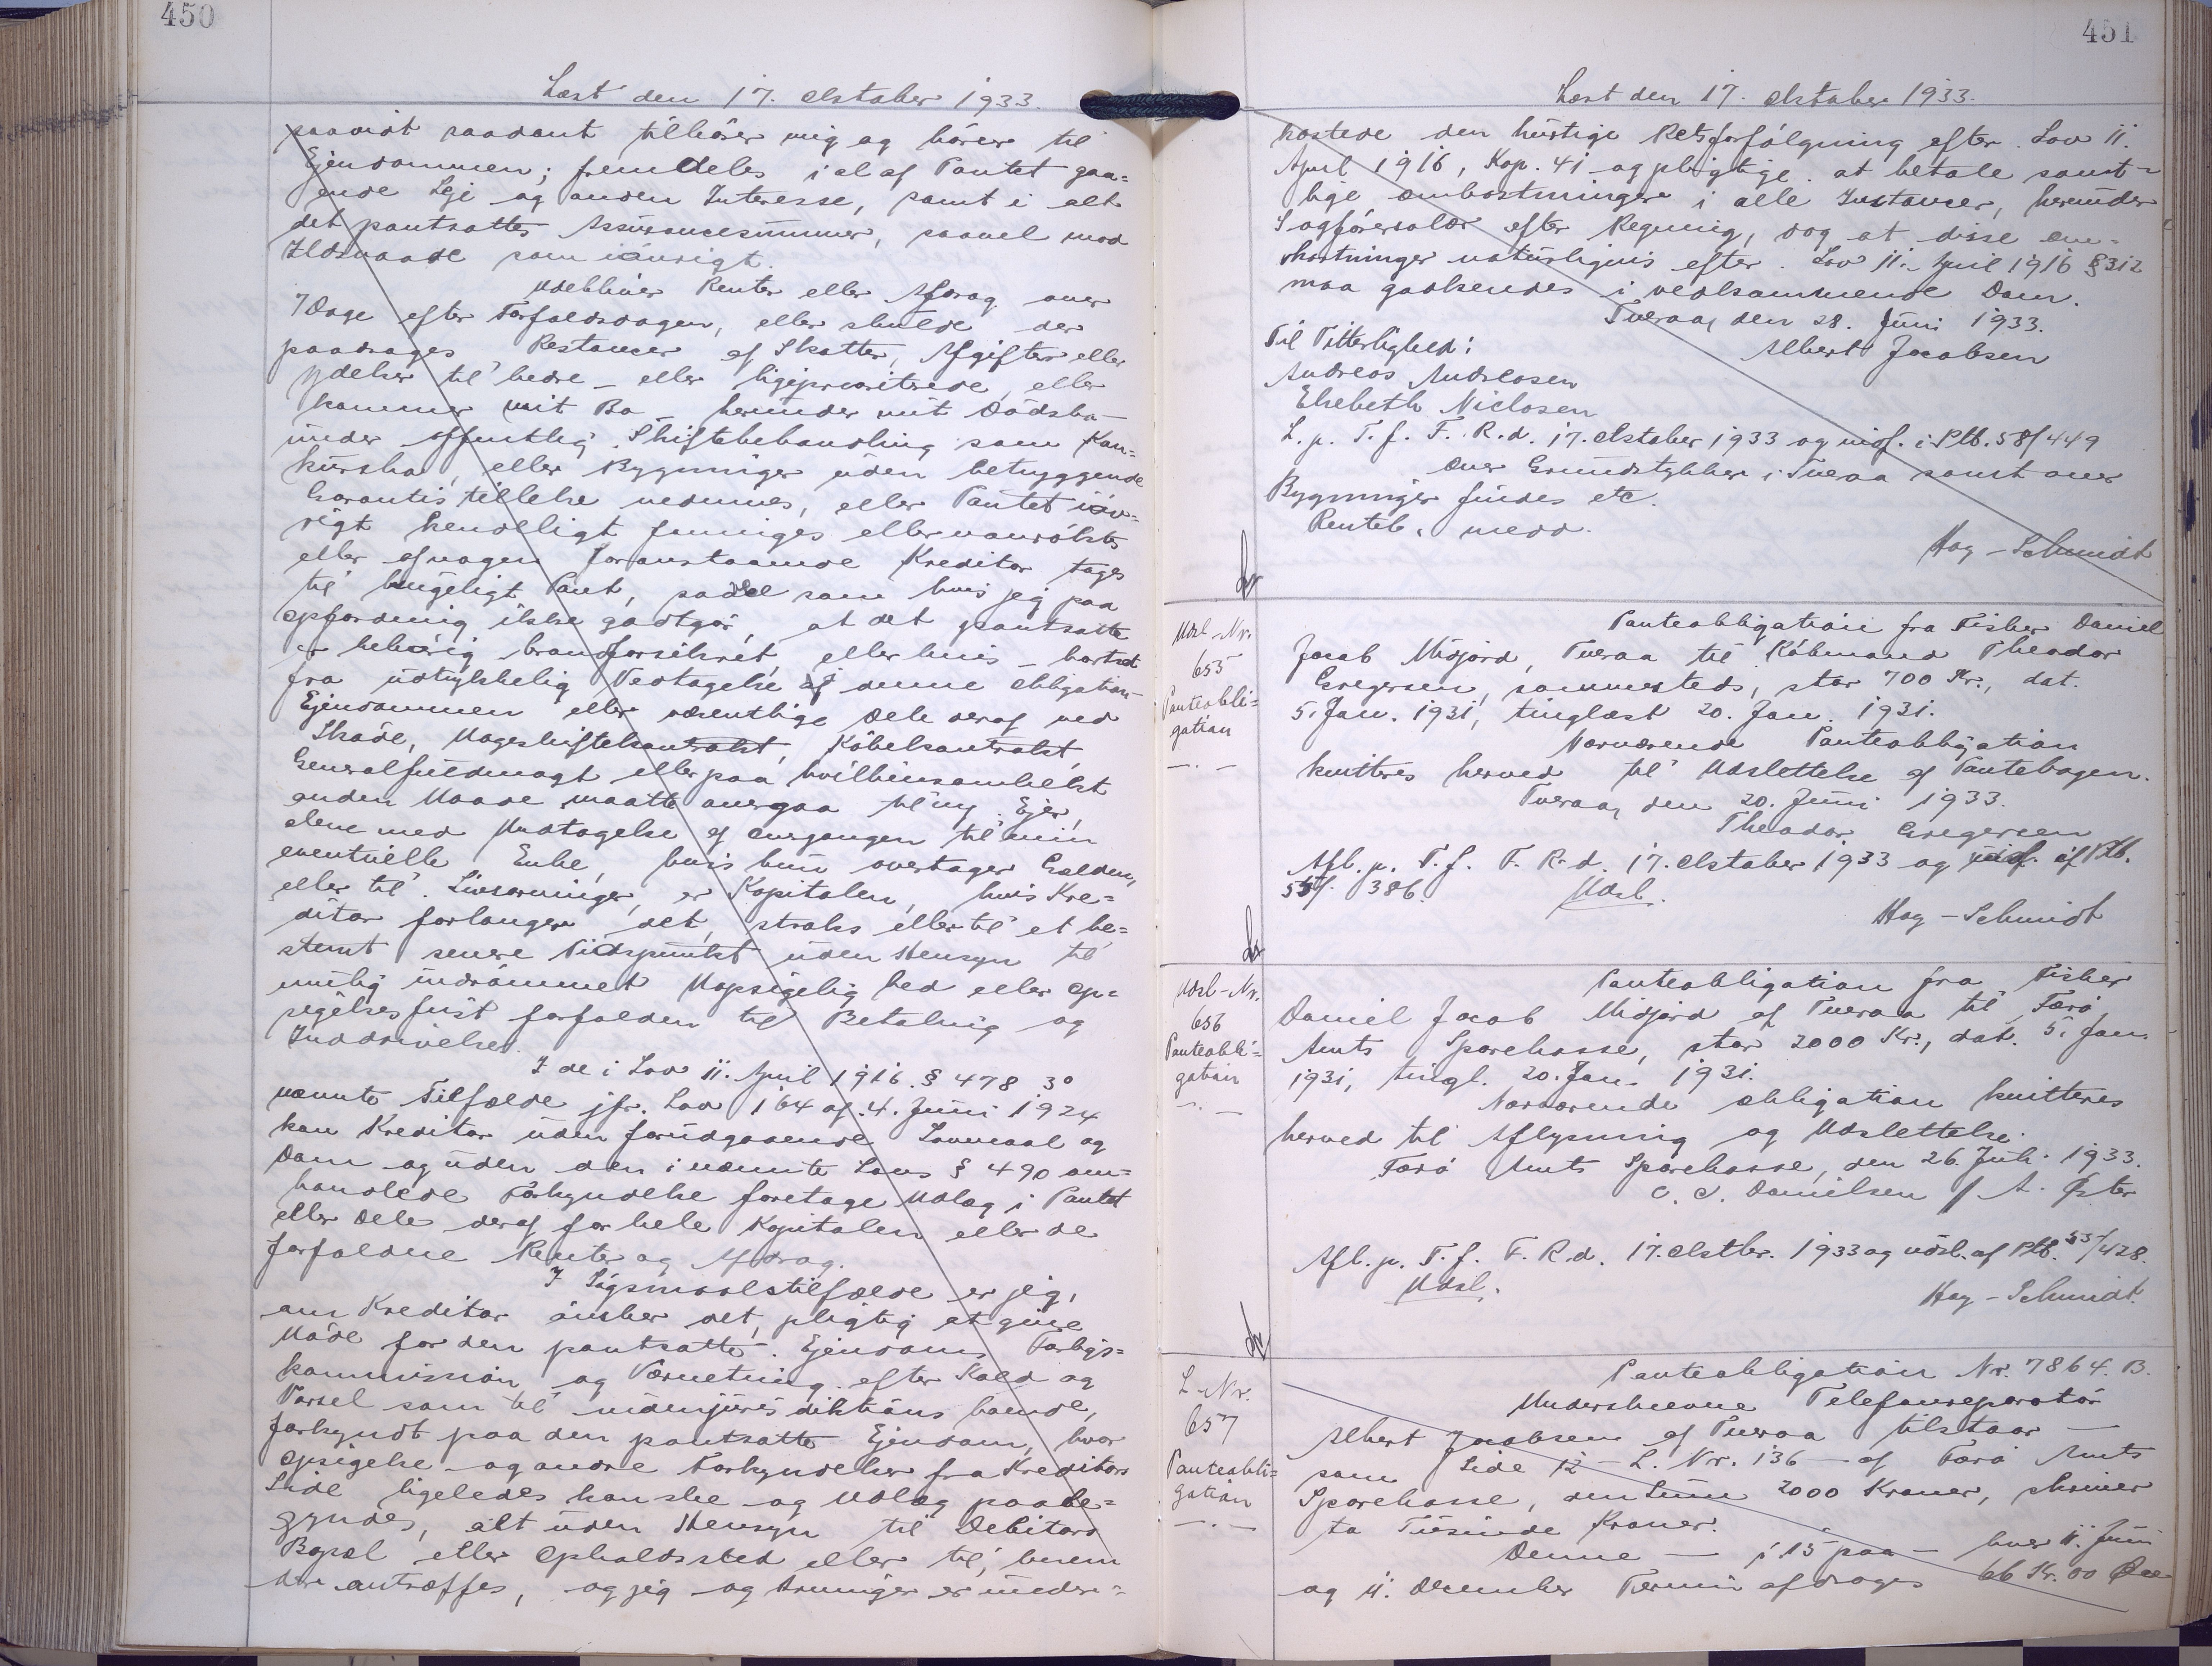 450
Læst den 17. Oktober 1933.
saavidt saadant tilhører mig og hører til
Ejendommen; fremdeles i al af Pantet gaa=
ende Leje og anden Interesse, samt i alt
det pantsattes Assurancesummer, saavel mod
Ildsvaade som iøvrigt.
Udebliver Renter eller Afdrag over
7 Dage efter Forfaldsdagen, eller skulde der
paadrages Restancer af Skatter, Afgifter eller
Ydelser til bedre- eller ligeprioriterede, eller
kommer mit Bo - herunder mit Dødsbo -
under offentlig Skiftebehandling som Kon=
kursbo, eller Bygninger uden betryggende
Garantistillelse nedrives, eller Pantet iøv=
rigt kendeligt forringes eller vanrøgtes
eller af nogen foranstaaende Kreditor tages
til brugeligt Pant, saavel som hvis jeg paa
Opfordring ikke godtgør, at det pantsatte
er behørig brandforsikret, eller hvis - bortset
fra udtrykkelig Vedtagelse af denne Obligation -
Ejendommen eller væsentlige Dele deraf ved
Skøde, Mageskiftekontrakt, Købekontrakt,
Generalfuldmagt eller paa hvilkensomhelst
anden Maade maatte overgaa til ny Ejer,
alene med Undtagelse af Overgangen til min
eventuelle Enke, hvis hun overtager Gælden,
eller til Livsarvinger, er Kapitalen, hvis Kre=
ditor forlanger det, straks eller til et be=
stemt senere Tidspunkt uden Hensyn til
mulig indrømmet Uopsigelighed eller Op=
sigelsesfrist forfalden til Betaling og
Inddrivelse.
I de i Lov 11. April 1916 § 478 3°
nævnte Tilfælde jfr. Lov 164 af 4. Juni 1924
kan Kreditor uden forudgaaende Lovmaal og
Dom og uden den i nævnte Lovs § 490 om=
handlede Forkyndelse foretage Udlæg i Pantet
eller Dele deraf for hele Kapitalen eller de
forfaldne Renter og Afdrag.
I Søgsmaalstilfælde er jeg,
om Kreditor ønsker det, pligtig at give
Møde for den pantsatte Ejendoms Forligs=
kommission og Værneting efter Kald og
Varsel som til indenjurisdiktions boende,
forkyndt paa den pantsatte Ejendom, hvor
Opsigelse og andre Forkyndelser fra Kreditors
Side ligeledes kan ske og Udlæg paabe=
gyndes, alt uden Hensyn til Debitors
Bopæl eller Opholdssted eller til, hvem
der antræffes, og jeg og Arvinger er under=
451
Læst den 17. Oktober 1933.
kastede den hurtige Retsforfølgning efter Lov 11.
April 1916, Kap. 41 og pligtige at betale samt=
lige Omkostninger i alle Instanser, herunder
Sagførersalær efter Regning, dog at disse Om=
kostninger naturligvis efter Lov 11. April 1916 § 312
maa godkendes i vedkommende Dom.
Tveraa, den 28. Juni 1933.
Til Vitterlighed: Albert Jacobsen
Andreas Andreasen
Elsebeth Niclasen
L. p. T. f. F. R. d. 17. Oktober 1933 og indf. i Ptb. 58/449
Over Grundstykker i Tveraa samt over
Bygninger findes etc.
Renteb. medd.
Høg-Schmidt
Udsl-Nr.
655
Panteobli=
gation
Panteobligation fra Fisker Daniel
Jacob Midjord, Tveraa til Købmand Theodor
Gregersen, sammesteds, stor 700 Kr., dat.
5. Jan. 1931, tinglæst 20. Jan. 1931.
Nærværende Panteobligation
kvitteres herved til Udslettelse af Pantebogen.
Tveraa, den 20. Juni 1933.
Theodor Gregersen
Afl. p. T. f. F. R. d. 17. Oktober 1933 og af Ptb.
55/386.
Udsl.
Høg-Schmidt
Udsl-Nr.
656
Panteobli=
gation
Panteobligation fra Fisker
Daniel Jacob Midjord af Tveraa til Færø
Amts Sparekasse, stor 2000 Kr., dat. 5. Jan.
1931, tingl. 20. Jan. 1931.
Nærværende Obligation kvitteres
herved til Aflysning og Udslettelse.
Færø Amts Sparekasse, den 26. Juli 1933.
C. C. Danielsen / A. Øster
Afl. p. T. f. F. R. d. 17. Oktbr. 1933 og udsl. af Ptb. 53/428.
Udsl.
Høg-Schmidt.
L-Nr.
657
Panteobli=
gation
Panteobligation Nr. 7864. B.
Underskrevne Telefonreparatør
Albert Jacobsen af Tveraa tilstaar -
som Side 12 - L. Nr. 136 - af Færø Amts
Sparekasse, den Sum 2000 Kroner, skriver
to Tusinde Kroner.
Denne - i 15 paa - hver 11. Juni
og 11. December Termin afdrages 66 Kr. 00 Øre